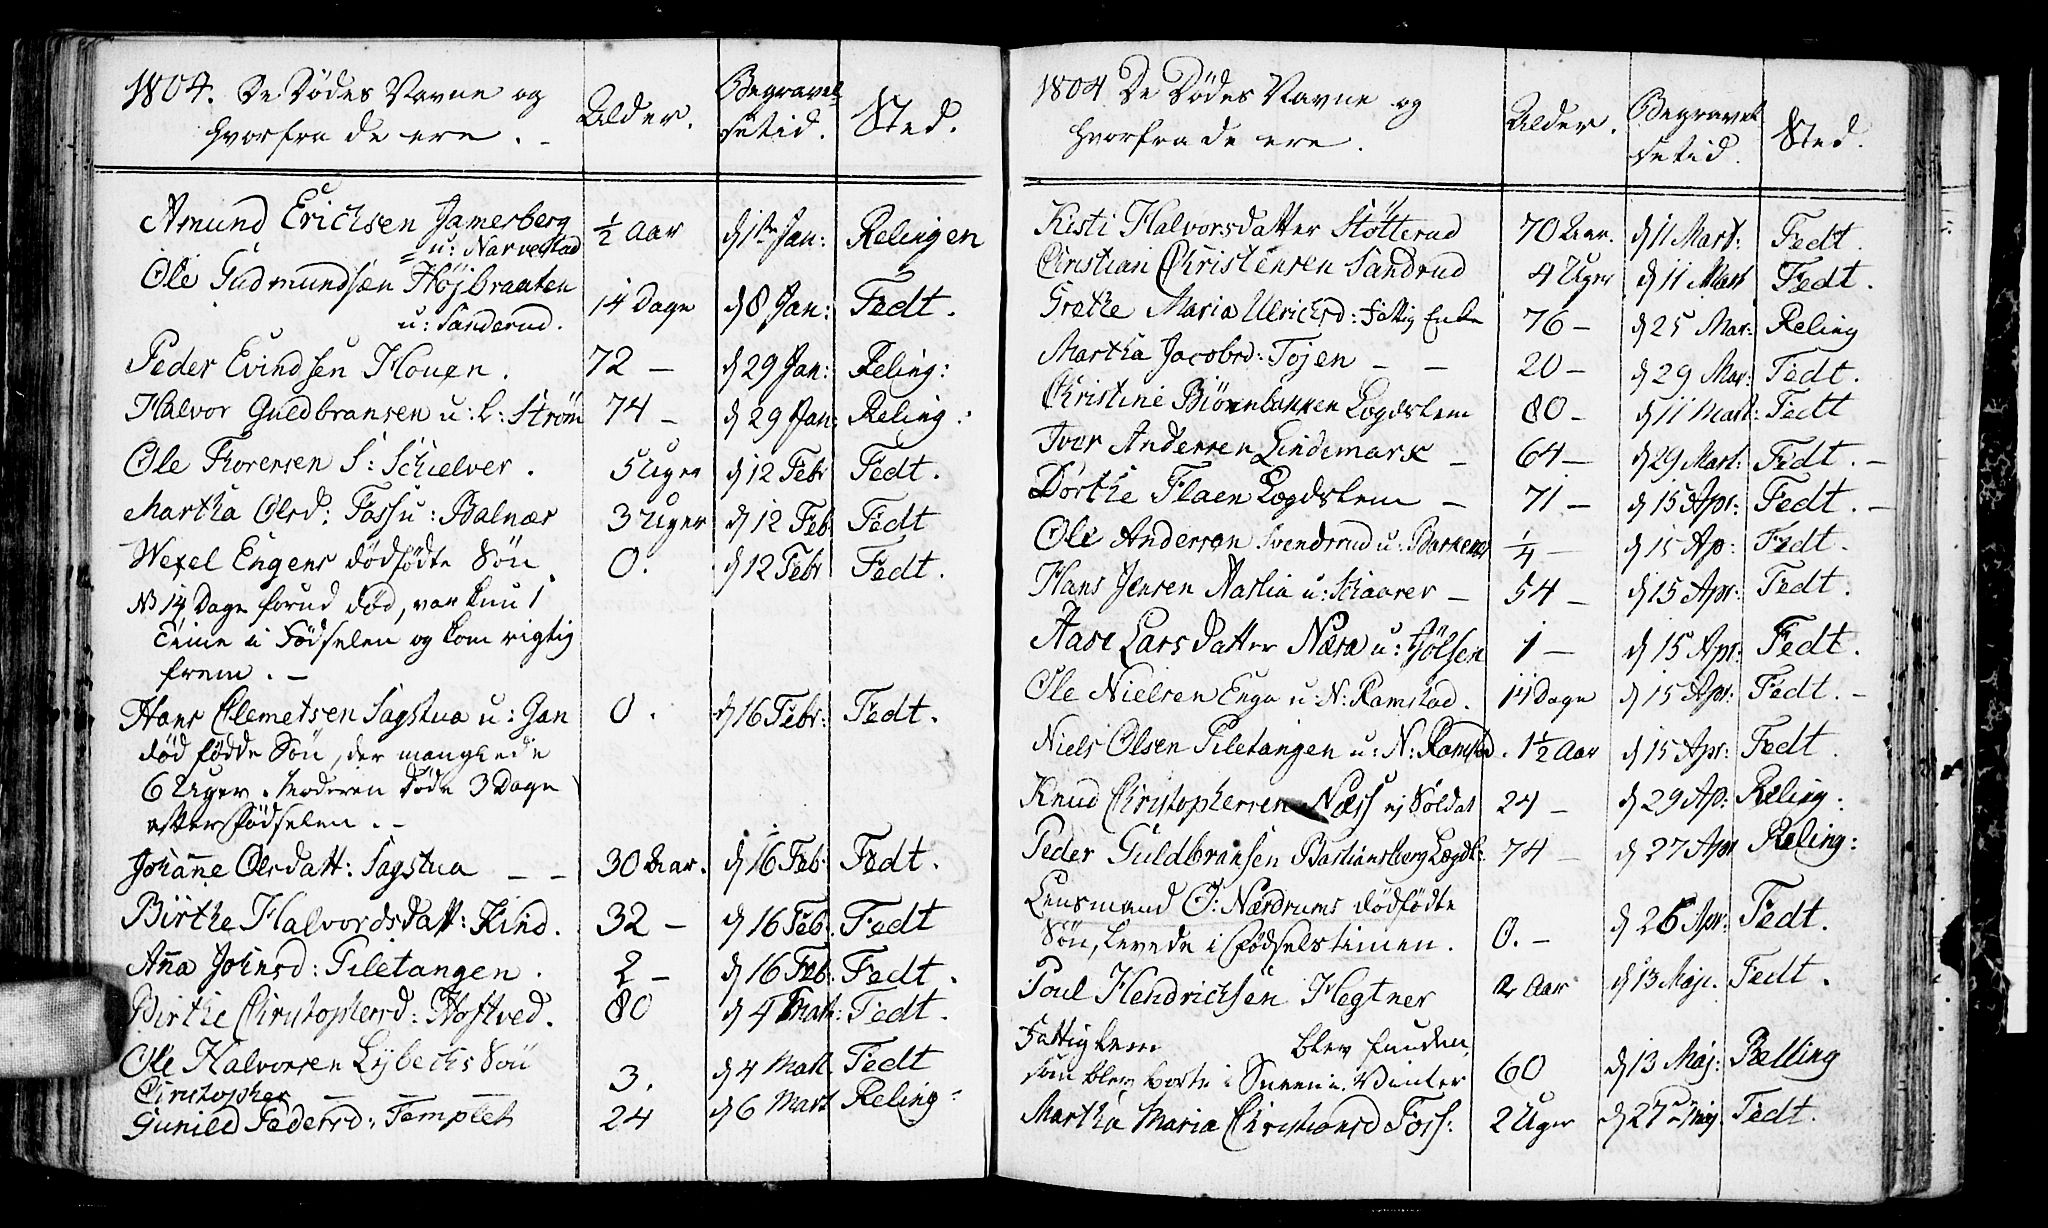 1804. De Dødes Navne og
hvorfra de ere. -
Alder.
Begravel-
setid.
Sted.
Amund Erichsen Jamerberg
u: Narvestad
½ Aar
d 1ste Jan:
Relingen
Ole Gudmundsen Højbraaten
u: Sanderud.
14 Dage
d 8 Jan:
Fedt.
Peder Evindsen Houen.
72 -
d 29 Jan:
Reling:
Halvor Guldbransen u: L: Strøm
74 -
d 29 Jan:
Reling:
Ole Thorensen S: Schielver.
5 Uger
d 12 Febr
Fedt.
Martha Olsd: Foss u: Balnæs
3 Uger
d 12 Feb:
Fedt
Wexel Engens dødfødte Søn
0.
d 12 Febr
Fedt.
NB 14 Dage forud død, var kun 1
Time i Fødselen og kom rigtig
frem. -
Hans Clemetsen Sagstua u: Gan
0.
d 16 Febr:
Fedt.
død fødde Søn, der manglede
6 Uger. Moderen døde 3 Dage
efter Fødselen. -
Johanne Olsdatt: Sagstua - -
30 Aar.
d 16 Feb:
Fedt.
Birthe Halvordsdatt: Kind.
32 -
d 16 Feb:
Fedt
Anna Johnsd: Piletangen.
2 -
d 16 Feb:
Fedt.
Birthe Christophersd: Hostved.
80
d 4 Mart:
Fedt.
Ole Halvorsen Lybechs Søn
Christopher - - -
3.
d 4 Mart
Fedt
Gunild Pedersd: Templet
24
d 6 Mart
Reling:
1804 De Dødes Navne og
hvorfra de ere.
Alder.
Begravel
setid.
Sted.
Kisti Halvorsdatter Støtterud
70 Aar.
d 11 Mart:
Fedt.
Christian Christensen Sandrud
4 Uger
d 11 Mart
Fedt.
Grethe Maria Ulrichsd: Fattig Enke
76 -
d 25 Mar:
Reling
Martha Jacobsd: Tojen - -
20 -
d 29 Mar:
Fedt.
Christine Biørnbakken Lægdslem
80 -
d 11 Mart:
Fedt
Iver Andersen Lindemark -
64 -
d 29 Mart:
Fedt. -
Dorthe Flaen Lægdslem -
71 -
d 15 Apr:
Fedt. -
Ole Andersen Svendsrud u: Barkem
¼ -
d 15 Ap:
Fedt.
Hans Jensen Aaslia u: Schaarer -
54 -
d 15 Apr:
Fedt.
Aase Larsdatter Næra u: Jølsen
1 -
d 15 Apr:
Fedt.
Ole Nielsen Enga u: N: Ramstad.
14 Dage
d 15 Apr:
Fedt. -
Niels Olsen Piletangen u: N: Ramstad.
1½ Aar
d 15 Apr:
Fedt.
Knud Christophersen Næss ej Soldat
24 -
d 29 Ap:
Reling:
Peder Guldbransen Bastiansberg Lægdsl:
74 -
d 27 Apr
Reling:
Lensmand O: Nærdrums dødfødte
Søn, levede i Fødselstimen.
0. -
d 26 Apr:
Fedt.
Poul Hendrichsen Hegtner
2 Aar
d 13 Maj.
Fedt.
Fattiglem blev funden,
som blev borte i Sneen i Vinter
60
d 13 Maj:
Relling
Martha Maria Christiansd Foss:
2 Uger
d 27de Maj
Fedt.